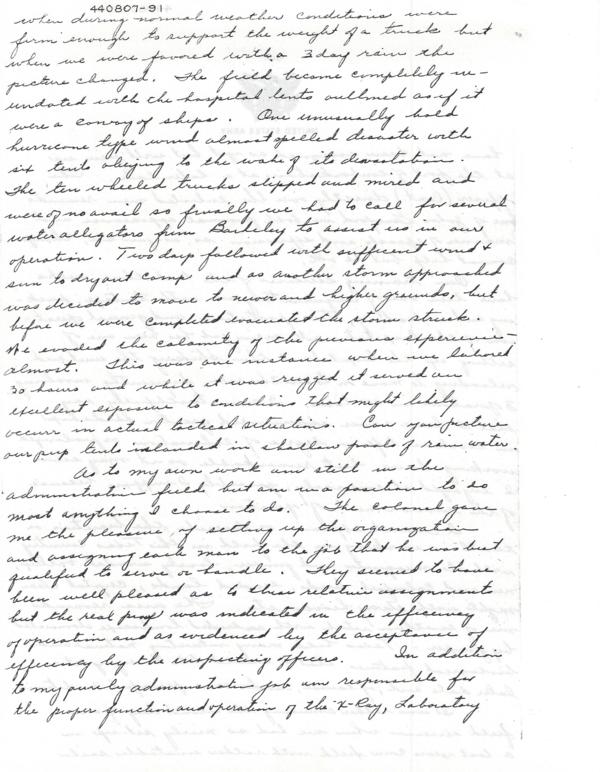 440807-91
when during normal weather conditions were
firm enough to support the weight of a truck but
when we were favored with a 3 day rain the
picture changed. The field became completely in-
undated with the hospital tents outlined as if it
were a convoy of ships. One unusually bold
hurricane type wind almost spelled disaster with
six tents obeying to the wake of its devastation.
The ten wheeled trucks slipped and mired and
were of no avail so finally we had to call for several
water alligators from Barkeley to assist us in our
operation. Two days followed with sufficient wind &
sun to dry out camp and as another storm approached
was decided to move to newer and higher grounds, but
before we were completed evacuated the storm struck.
We evaded the calamity of the previous experience -
almost. This was one instance when we labored
30 hours and while it was rugged it served an
excellent exposure to conditions that might likely
occurr in actual tactical situations. Can you picture
our pup tents islanded in shallow pools of rain water.
As to my own work am still in the
administrative field but am in a position to do
most anything I choose to do. The colonel gave
me the pleasure of setting up the organization
and assigning each man to the job that he was best
qualified to serve or handle. They seemed to have
been well pleased as to their relative assignments
but the real proof was indicated in the efficiency
of operation and as evidenced by the acceptance of
efficency by the inspecting officers. In addition
to my purely administrative job am responsible for
the proper function and operation of the X-Ray, Laboratory